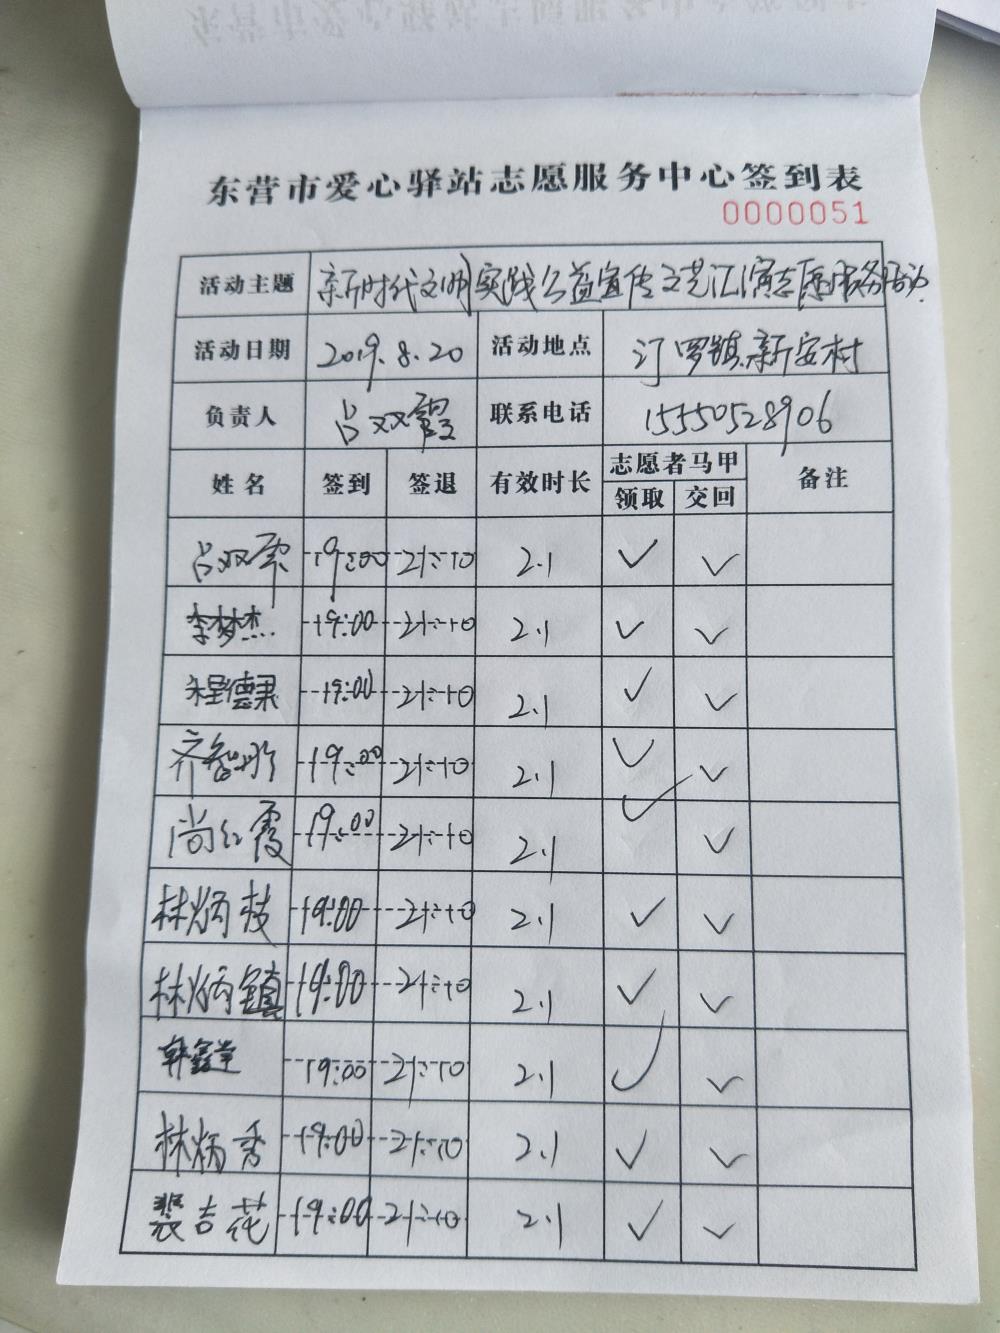 东营市爱心驿站志愿服务中心签到表
0000051
活动主题 新时代文明实践公益宣传文艺汇演志愿服务活动
活动日期 2019.8.20 活动地点 汀罗镇新安村
负责人 吕双霞 联系电话 15550528906
姓名 签到 签退 有效时长 志愿者马甲 备注
领取 交回
吕双霞 19:00 21:10 2.1 ✓ ✓
李梦杰 19:00 21:10 2.1 ✓ ✓
程德果 19:00 21:10 2.1 ✓ ✓
齐智彤 19:00 21:10 2.1 ✓ ✓
尚红霞 19:00 21:10 2.1 ✓ ✓
林炳枝 19:00 21:10 2.1 ✓ ✓
林炳镇 19:00 21:10 2.1 ✓ ✓
韩鑫 19:00 21:10 2.1 ✓ ✓
林炳香 19:00 21:10 2.1 ✓ ✓
裴吉花 19:00 21:10 2.1 ✓ ✓